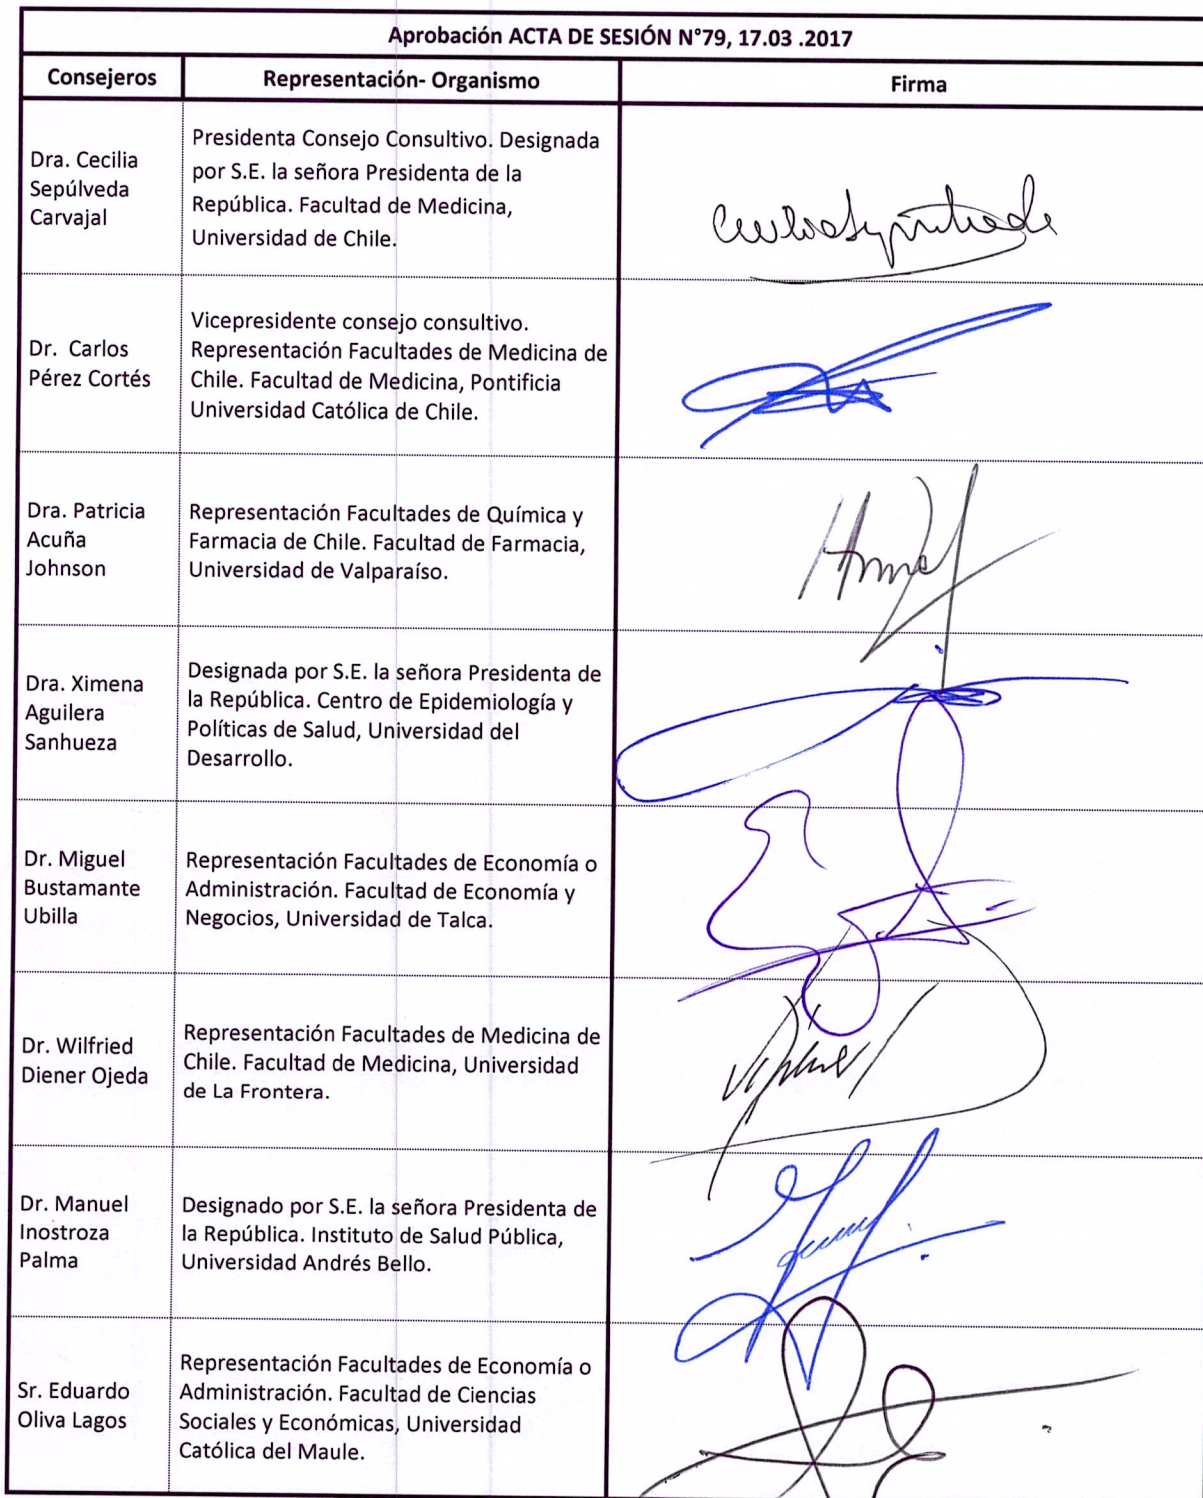 Aprobación ACTA DE SESIÓN N°79, 17.03 .2017
Consejeros
Representación- Organismo
Firma
Dra. Cecilia
Sepúlveda
Carvajal
Presidenta Consejo Consultivo. Designada
por S.E. la señora Presidenta de la
República. Facultad de Medicina,
Universidad de Chile.
Dr. Carlos
Pérez Cortés
Vicepresidente consejo consultivo.
Representación Facultades de Medicina de
Chile. Facultad de Medicina, Pontificia
Universidad Católica de Chile.
Dra. Patricia
Acuña
Johnson
Representación Facultades de Química y
Farmacia de Chile. Facultad de Farmacia,
Universidad de Valparaíso.
Dra. Ximena
Aguilera
Sanhueza
Designada por S.E. la señora Presidenta de
la República. Centro de Epidemiología y
Políticas de Salud, Universidad del
Desarrollo.
Dr. Miguel
Bustamante
Ubilla
Representación Facultades de Economía o
Administración. Facultad de Economía y
Negocios, Universidad de Talca.
Dr. Wilfried
Diener Ojeda
Representación Facultades de Medicina de
Chile. Facultad de Medicina, Universidad
de La Frontera.
Dr. Manuel
Inostroza
Palma
Designado por S.E. la señora Presidenta de
la República. Instituto de Salud Pública,
Universidad Andrés Bello.
Sr. Eduardo
Oliva Lagos
Representación Facultades de Economía o
Administración. Facultad de Ciencias
Sociales y Económicas, Universidad
Católica del Maule.